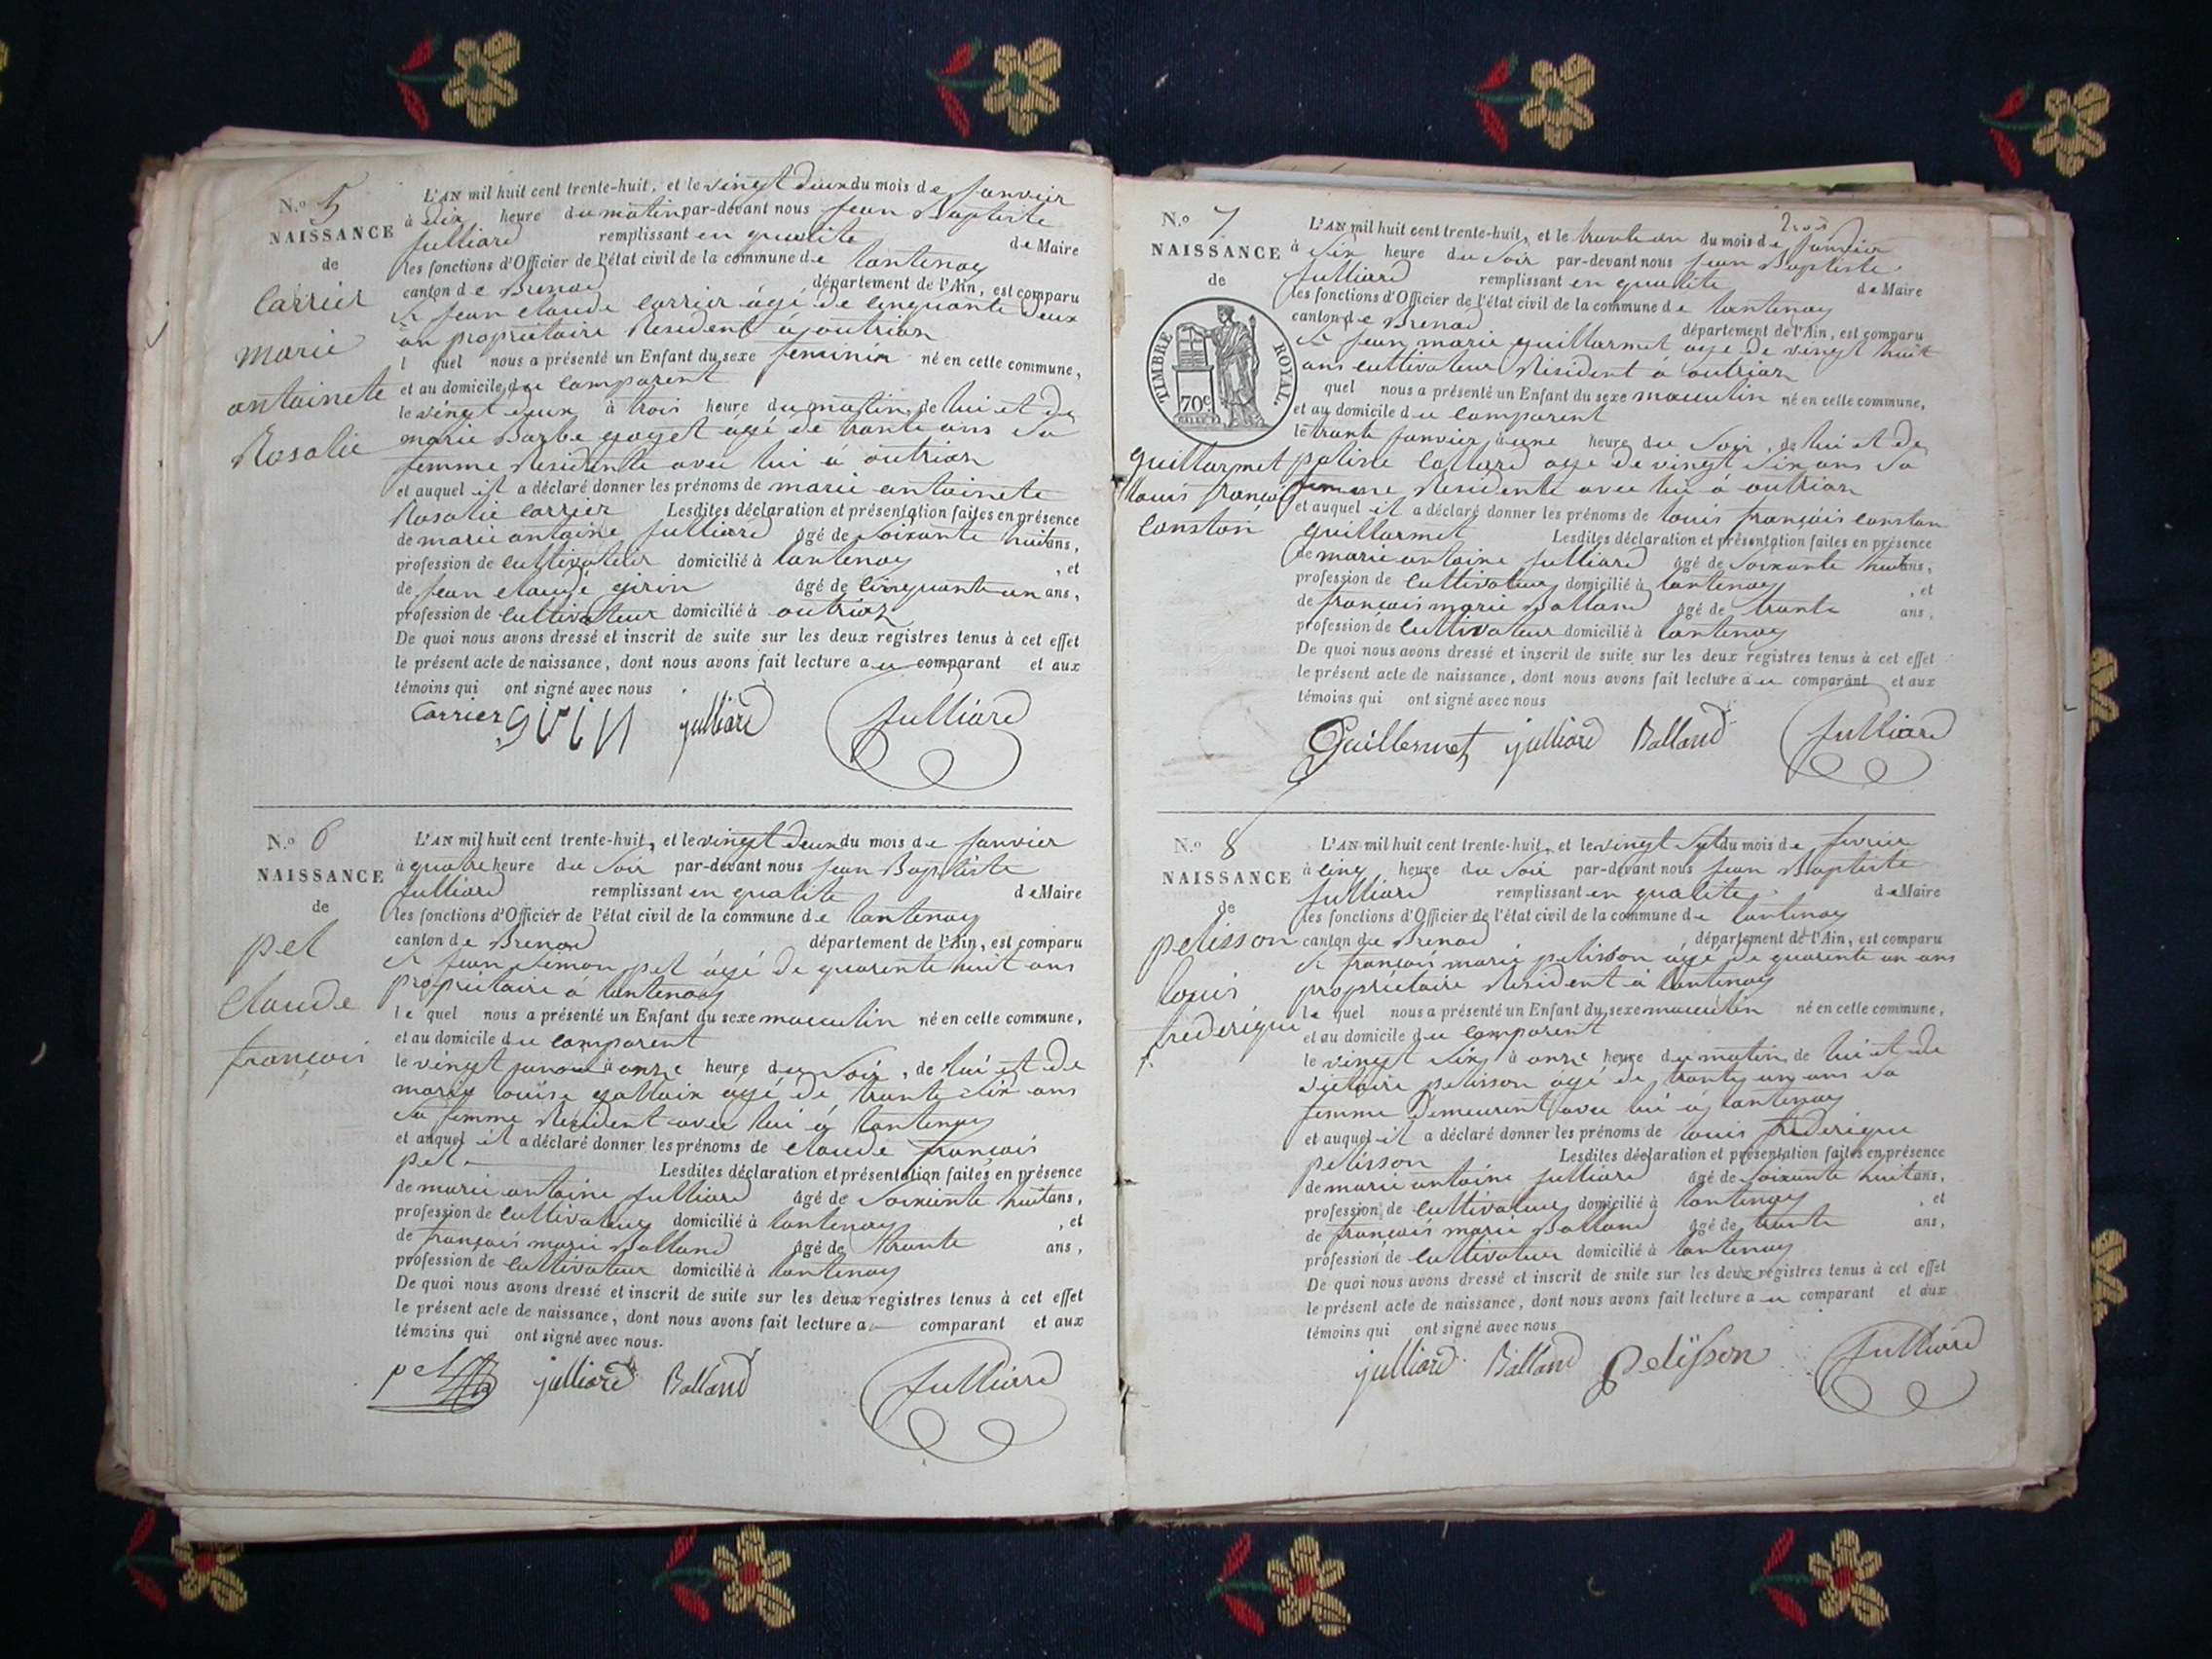 N.o 5
NAISSANCE
de
Carrier
marie
antoinete
Rosalie
L'AN mil huit cent trente-huit, et le vingt deux du mois de janvier
à dix heure du matin par-devant nous jean Baptiste
julliard remplissant en qualite de Maire
les fonctions d'Officier de l'état civil de la commune de lantenay
canton de Brenod département de l'Ain, est comparu
jean claude carrier agé de cinquante deux
an propriétaire Résident à outriaz
l quel nous a présenté un Enfant du sexe feminin né en cette commune,
et au domicile du comparent
le vingt deux à trois heure du matin, de lui et de
marie Barbe goyet agé de trante ans sa
femme Residente avec lui à outriaz
et auquel il a déclaré donner les prénoms de marie antoinete
Rosalie carrier Lesdites déclaration et présentation faites en présence
de marie antoine julliard âgé de soixante huit ans,
profession de cultivateur domicilié à lantenay, et
de jean claude girin âgé de cinquante un ans,
profession de cultivateur domicilié à outriaz
De quoi nous avons dressé et inscrit de suite sur les deux registres tenus à cet effet
le présent acte de naissance, dont nous avons fait lecture au comparant et aux
témoins qui ont signé avec nous
Carrier girin julliard julliard
N.o 6
NAISSANCE
de
pel
Claude
françois
L'AN mil huit cent trente-huit, et le vingt deux du mois de janvier
à quatre heure du soir par-devant nous jean Baptiste
julliard remplissant en qualite de Maire
les fonctions d'Officier de l'état civil de la commune de lantenay
canton de Brenod département de l'Ain, est comparu
jean simon pel âgé de quarente huit ans
propriétaire à lantenay
le quel nous a présenté un Enfant du sexe masculin né en cette commune,
et au domicile du comparent
le vingt à onze heure du soir, de lui et de
marie louise agé de trante six ans
sa femme Résident avec lui à lantenay
et auquel il a déclaré donner les prénoms de claude françois
pel Lesdites déclaration et présentation faites en présence
de marie antoine julliard âgé de soixante huit ans,
profession de cultivateur domicilié à lantenay, et
de françois marie Balland âgé de trante ans,
profession de cultivateur domicilié à lantenay
De quoi nous avons dressé et inscrit de suite sur les deux registres tenus à cet effet
le présent acte de naissance, dont nous avons fait lecture a comparant et aux
témoins qui ont signé avec nous.
pel julliard Balland julliard
N.o 7
NAISSANCE
de
TIMBRE ROYAL.
70c
guillermet
louis françois
constan
L'AN mil huit cent trente-huit, et le trante un du mois de janvier
à six heure du soir par-devant nous jean Baptiste
julliard remplissant en qualite de Maire
les fonctions d'Officier de l'état civil de la commune de lantenay
canton de Brenod département de l'Ain, est comparu
jean marie guillermet agé de vingt huit
ans cultivateur Résident à outriaz
quel nous a présenté un Enfant du sexe masculin né en cette commune,
et au domicile du comparent
le trante janvier à une heure du soir, de lui et de
poline agé de vingt six ans sa
femme Residente avec lui à outriaz
et auquel il a déclaré donner les prénoms de louis françois constan
guillermet Lesdites déclaration et présentation faites en présence
de marie antoine julliard âgé de soixante huit ans,
profession de cultivateur domicilié à lantenay, et
de françois marie Balland âgé de trante ans,
profession de cultivateur domicilié à lantenay
De quoi nous avons dressé et inscrit de suite sur les deux registres tenus à cet effet
le présent acte de naissance, dont nous avons fait lecture au comparant et aux
témoins qui ont signé avec nous
Guillermet julliard Balland julliard
N.o 8
NAISSANCE
de
pelisson
louis
frederique
L'AN mil huit cent trente-huit, et le vingt sept du mois de fevrier
à cinq heure du soir par-devant nous jean Baptiste
julliard remplissant en qualite de Maire
les fonctions d'Officier de l'état civil de la commune de lantenay
canton de Brenod département de l'Ain, est comparu
françois marie pelisson agé de quarente un ans
propriétaire Résident à lantenay
le quel nous a présenté un Enfant du sexe masculin né en cette commune,
et au domicile du comparent
le vingt six à onze heure du matin, de lui et de
victoire pelisson agé de trante un ans sa
femme Demeurent avec lui à lantenay
et auquel il a déclaré donner les prénoms de louis frederique
pelisson Lesdites déclaration et présentation faites en présence
de marie antoine julliard âgé de soixante huit ans,
profession de cultivateur domicilié à lantenay, et
de françois marie Balland âgé de trante ans,
profession de cultivateur domicilié à lantenay
De quoi nous avons dressé et inscrit de suite sur les deux registres tenus à cet effet
le présent acte de naissance, dont nous avons fait lecture au comparant et aux
témoins qui ont signé avec nous
julliard Balland pelisson julliard